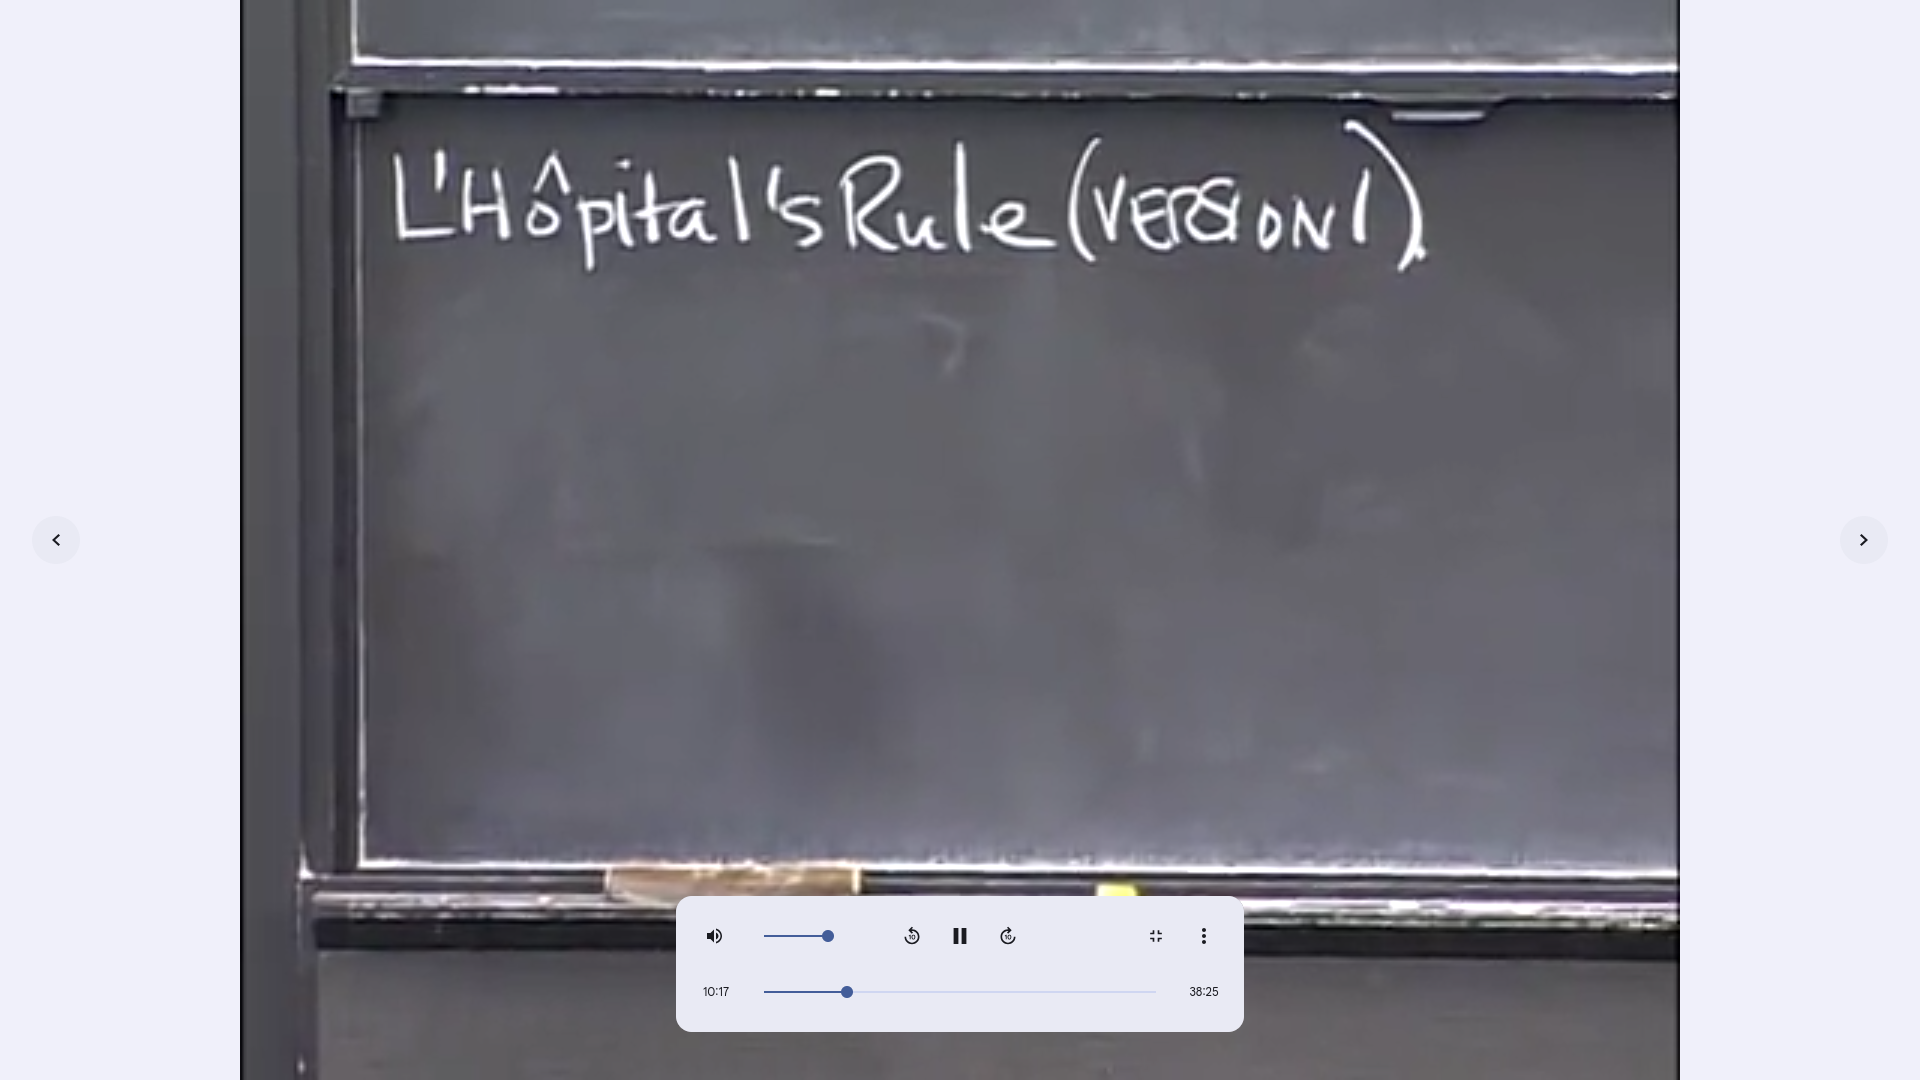 L'Hôpital's Rule (VERSION 1)
10 10
10:17 38:25